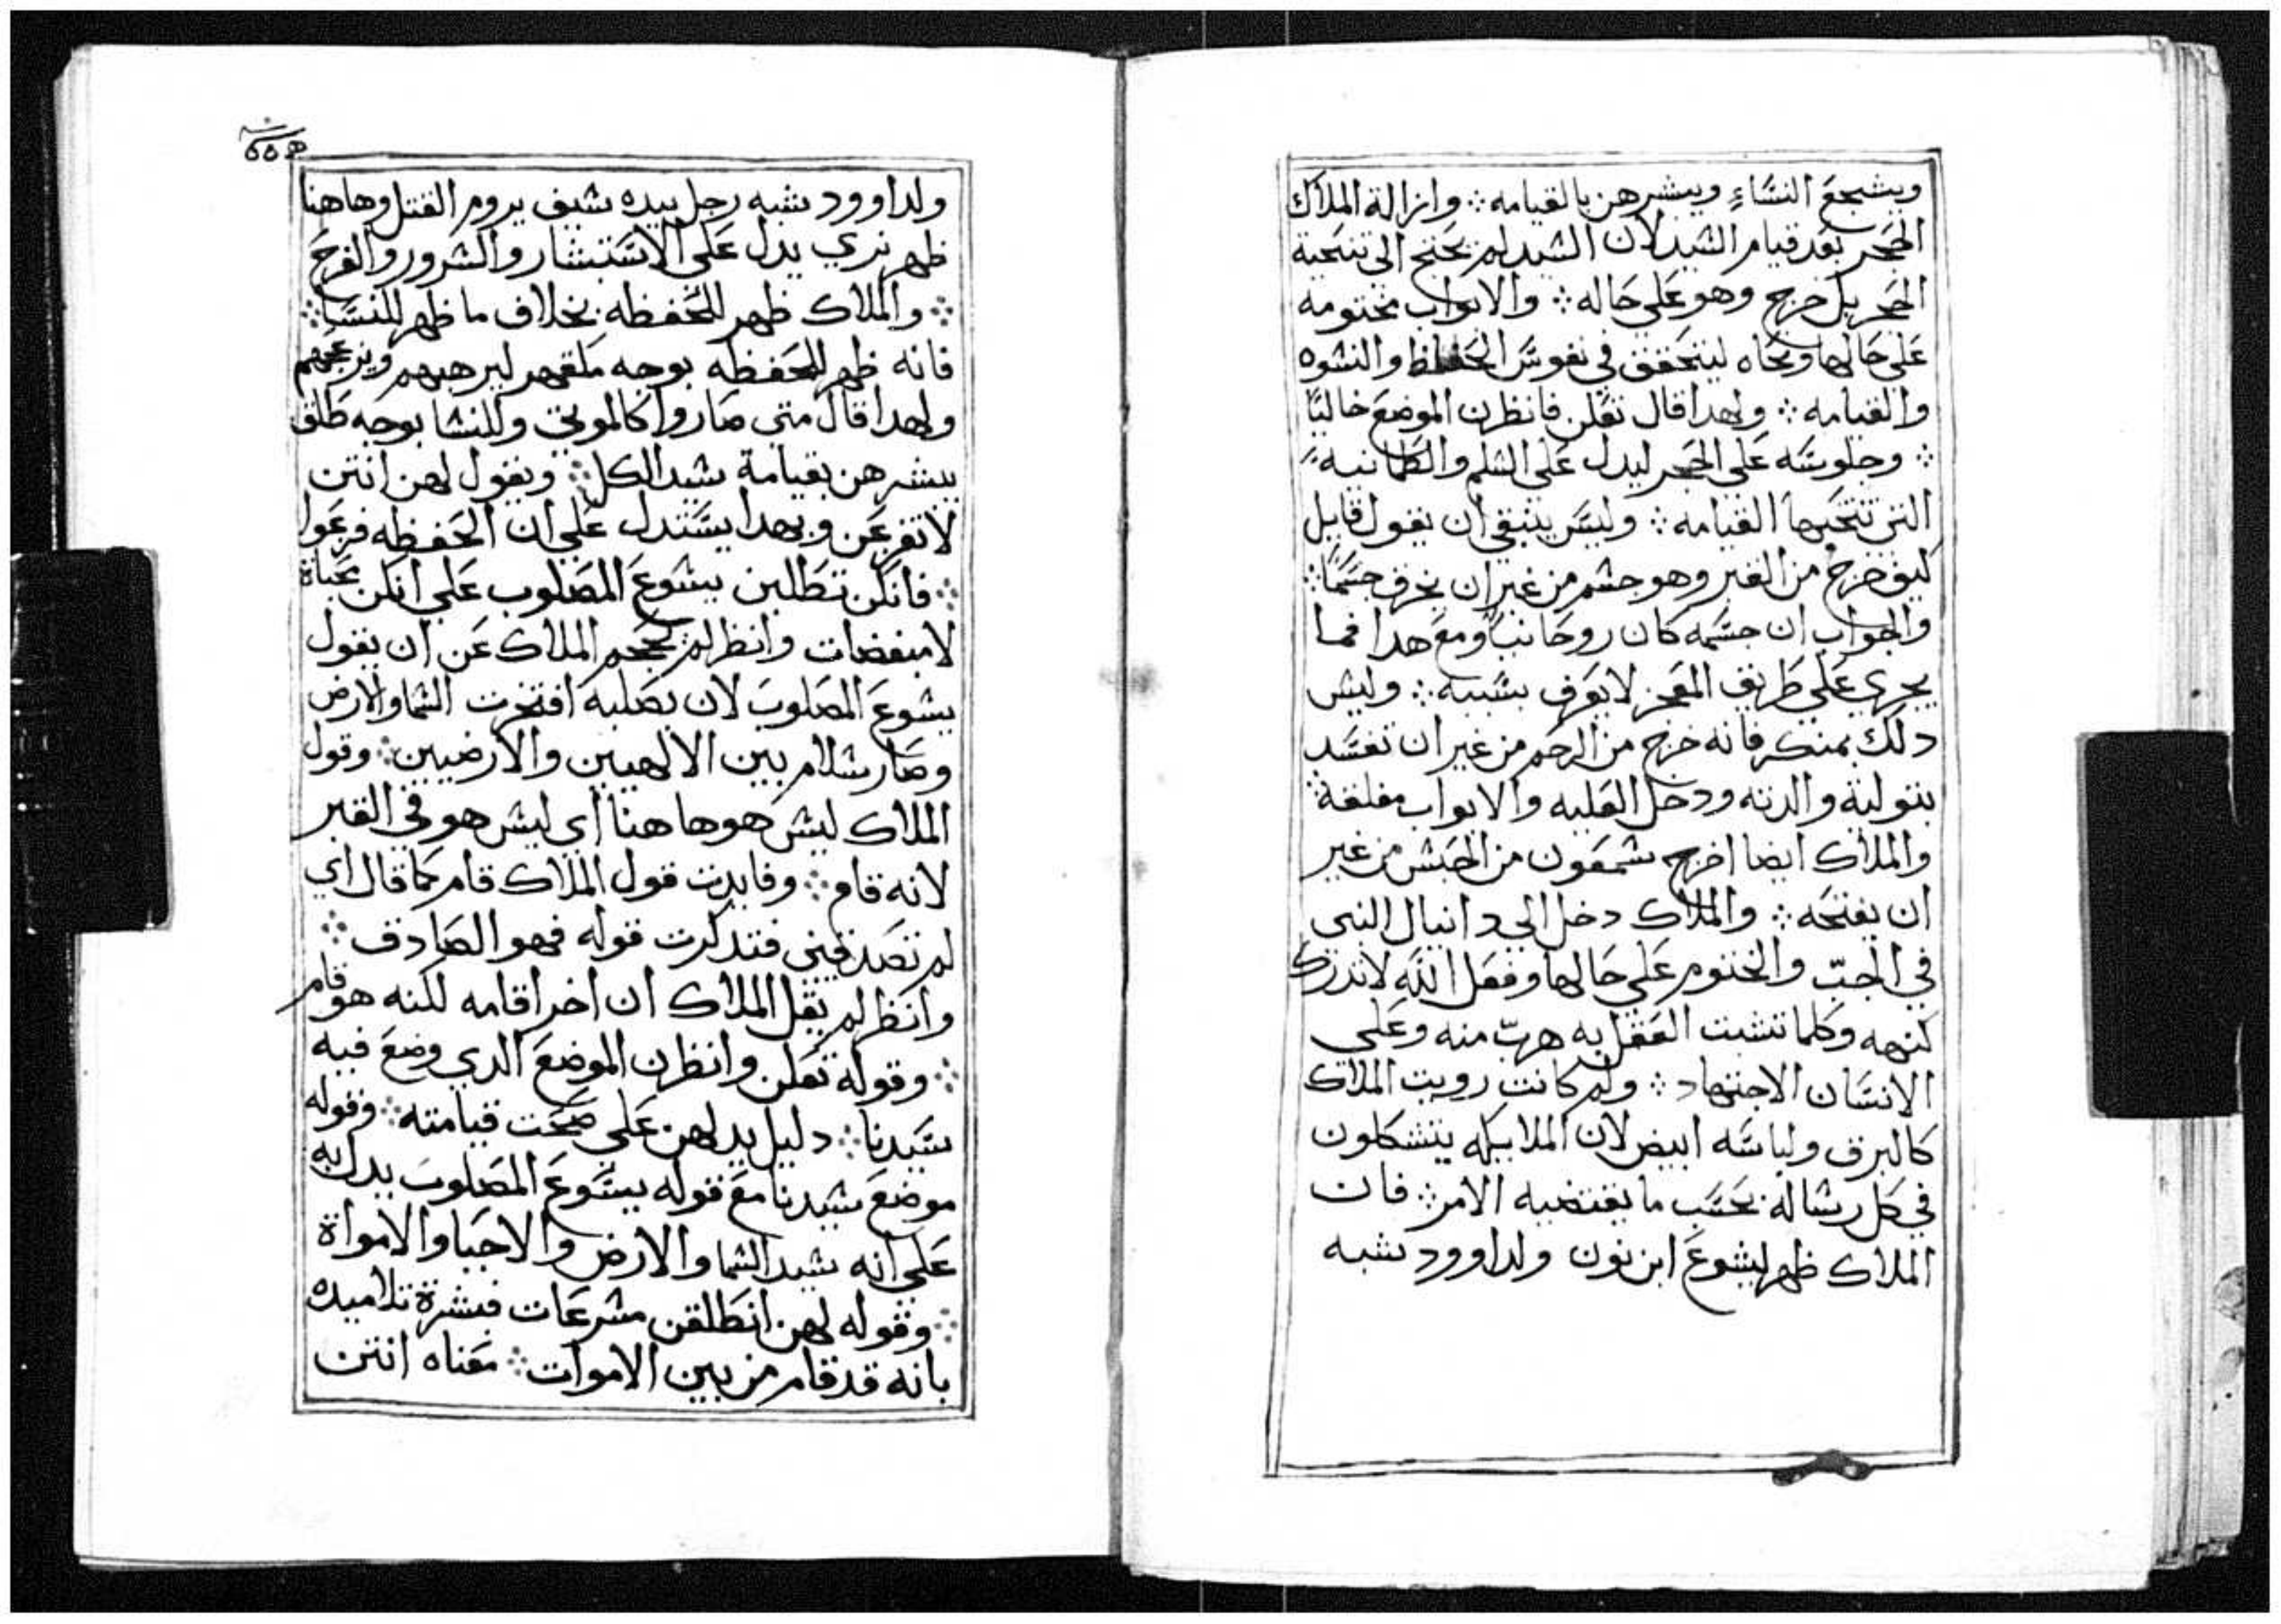 ويشجع النساء ويبشرهن بالقيامه ܀ وازالة الملاك
الحجر بعد قيام السيد لان السيد لم يحتج الى تنحية
الحجر بل خرج وهو على حاله ܀ والابواب مختومه
على حالها ونحاه ليتحقق في نفوس الحفاظ والنسوه
والقيامه ܀ ولهدا قال تعلن فانظرن الموضع خاليًا
܀ وجلوسه على الحجر ليدل على السلم والطمانينه
التى تتحبها القيامه ܀ وليس ينبغي ان يقول قايل
كيف خرج من القبر وهو جسم من غير ان يخرق جسمًا ܀
والجواب ان جسمه كان روحانيًا ومع هدا فما
يجري على طريق المعجز لا يعرف سببه ܀ وليس
دلك بمنكر فانه خرج من الرحم من غير ان تفسد
بتولية والدته ودخل العليه والابواب مغلقة ܀
والملاك ايضا اخرج شمعون من الحبس من غير
ان يفتحه ܀ والملاك دخل الي دانيال النبى
في الجبّ والختوم على حالها وفعل الله لا تدرك
كنهه وكلما تشبت العقل به هربّ منه وعلى
الانسان الاجتهاد ܀ ولم كانت رويت الملاك
كالبرق ولباسه ابيض لان الملايكه يتشكلون
في كل رسالة بحسب ما يقتضيه الامر ܀ فان
الملاك ظهر ليشوع ابن نون ولداوود شبه
ولداوود شبه رجل بيده سيف يروم القتل وهاهنا
ظهر بزي يدل على الاستبشار والسرور والفرح
܀ والملاك ظهر للحفظه بخلاف ما ظهر للنسا ܀
فانه ظهر للحفظه بوجه ملقهر ليرهبهم ويزعجهم
ولهدا قال متى صاروا كالموتى وللنسا بوجه طلق
يبشرهن بقيامة سيد الكل ܀ ويقول لهن انتن
لا تفزعن وبهدا يستدل على ان الحفظه فزعوا
܀ فانكن تطلبن يسوع المصلوب على انكن بحياة
لا مبغضات وانظر لم يحجم الملاك عن ان يقول
يسوع المصلوب لان بصلبه افتخرت السما والارض
وصار سلام بين الالهيين والارضيين ܀ وقول
الملاك ليس هو هاهنا اي ليس هو في القبر
لانه قام ܀ وفايدت قول الملاك قام كما قال اي
لم تصدقينى فتدكرت قوله فهو الصادق ܀
وانظر لم يقل الملاك ان اخر اقامه لكنه هو قام
܀ وقوله تعلن وانظرن الموضع الدي وضع فيه
سيدنا ܀ دليل يدلهن على صحت قيامته ܀ وقوله
موضع سيدنا مع قوله يسوع المصلوب يدل به
على انه سيد السما والارض والاحيا والامواة
܀ وقوله لهن انطلقن مسرعات فبشرة تلاميده
بانه قد قام من بين الاموات ܀ معناه انتن